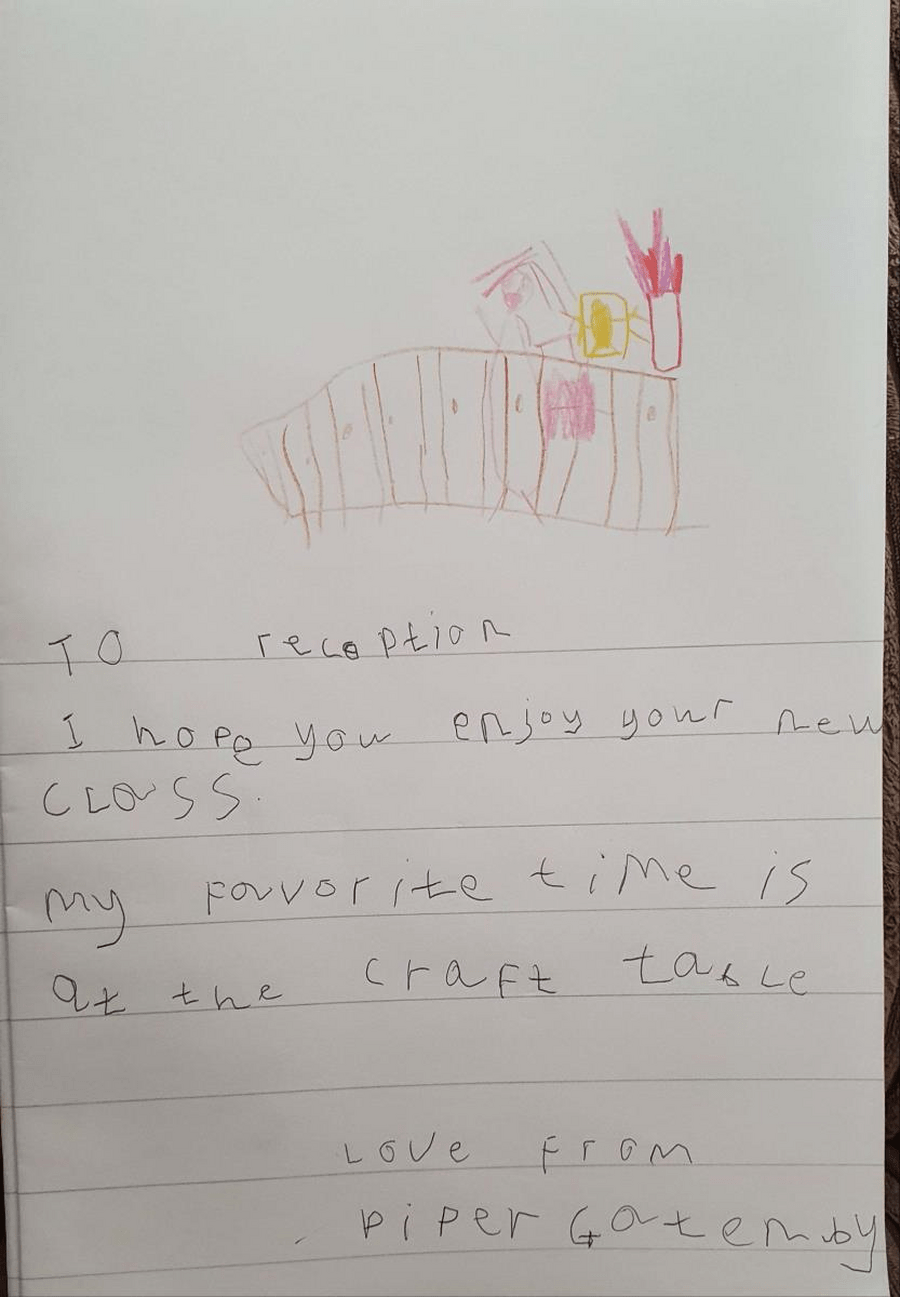 TO reception
I hope you enjoy your new
CLass.
my Favorite tiMe is
at the craFt tabLe
LOVe From
PiPer Gatenby